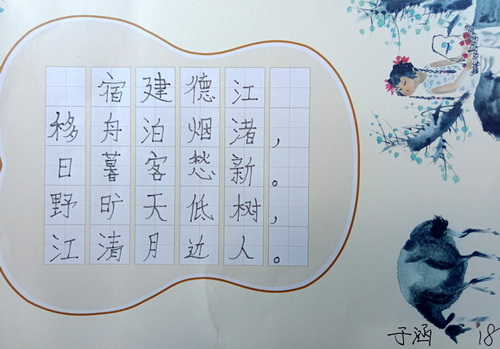 宿建德江
移舟泊烟渚，
日暮客愁新。
野旷天低树，
江清月近人。
于涵 18